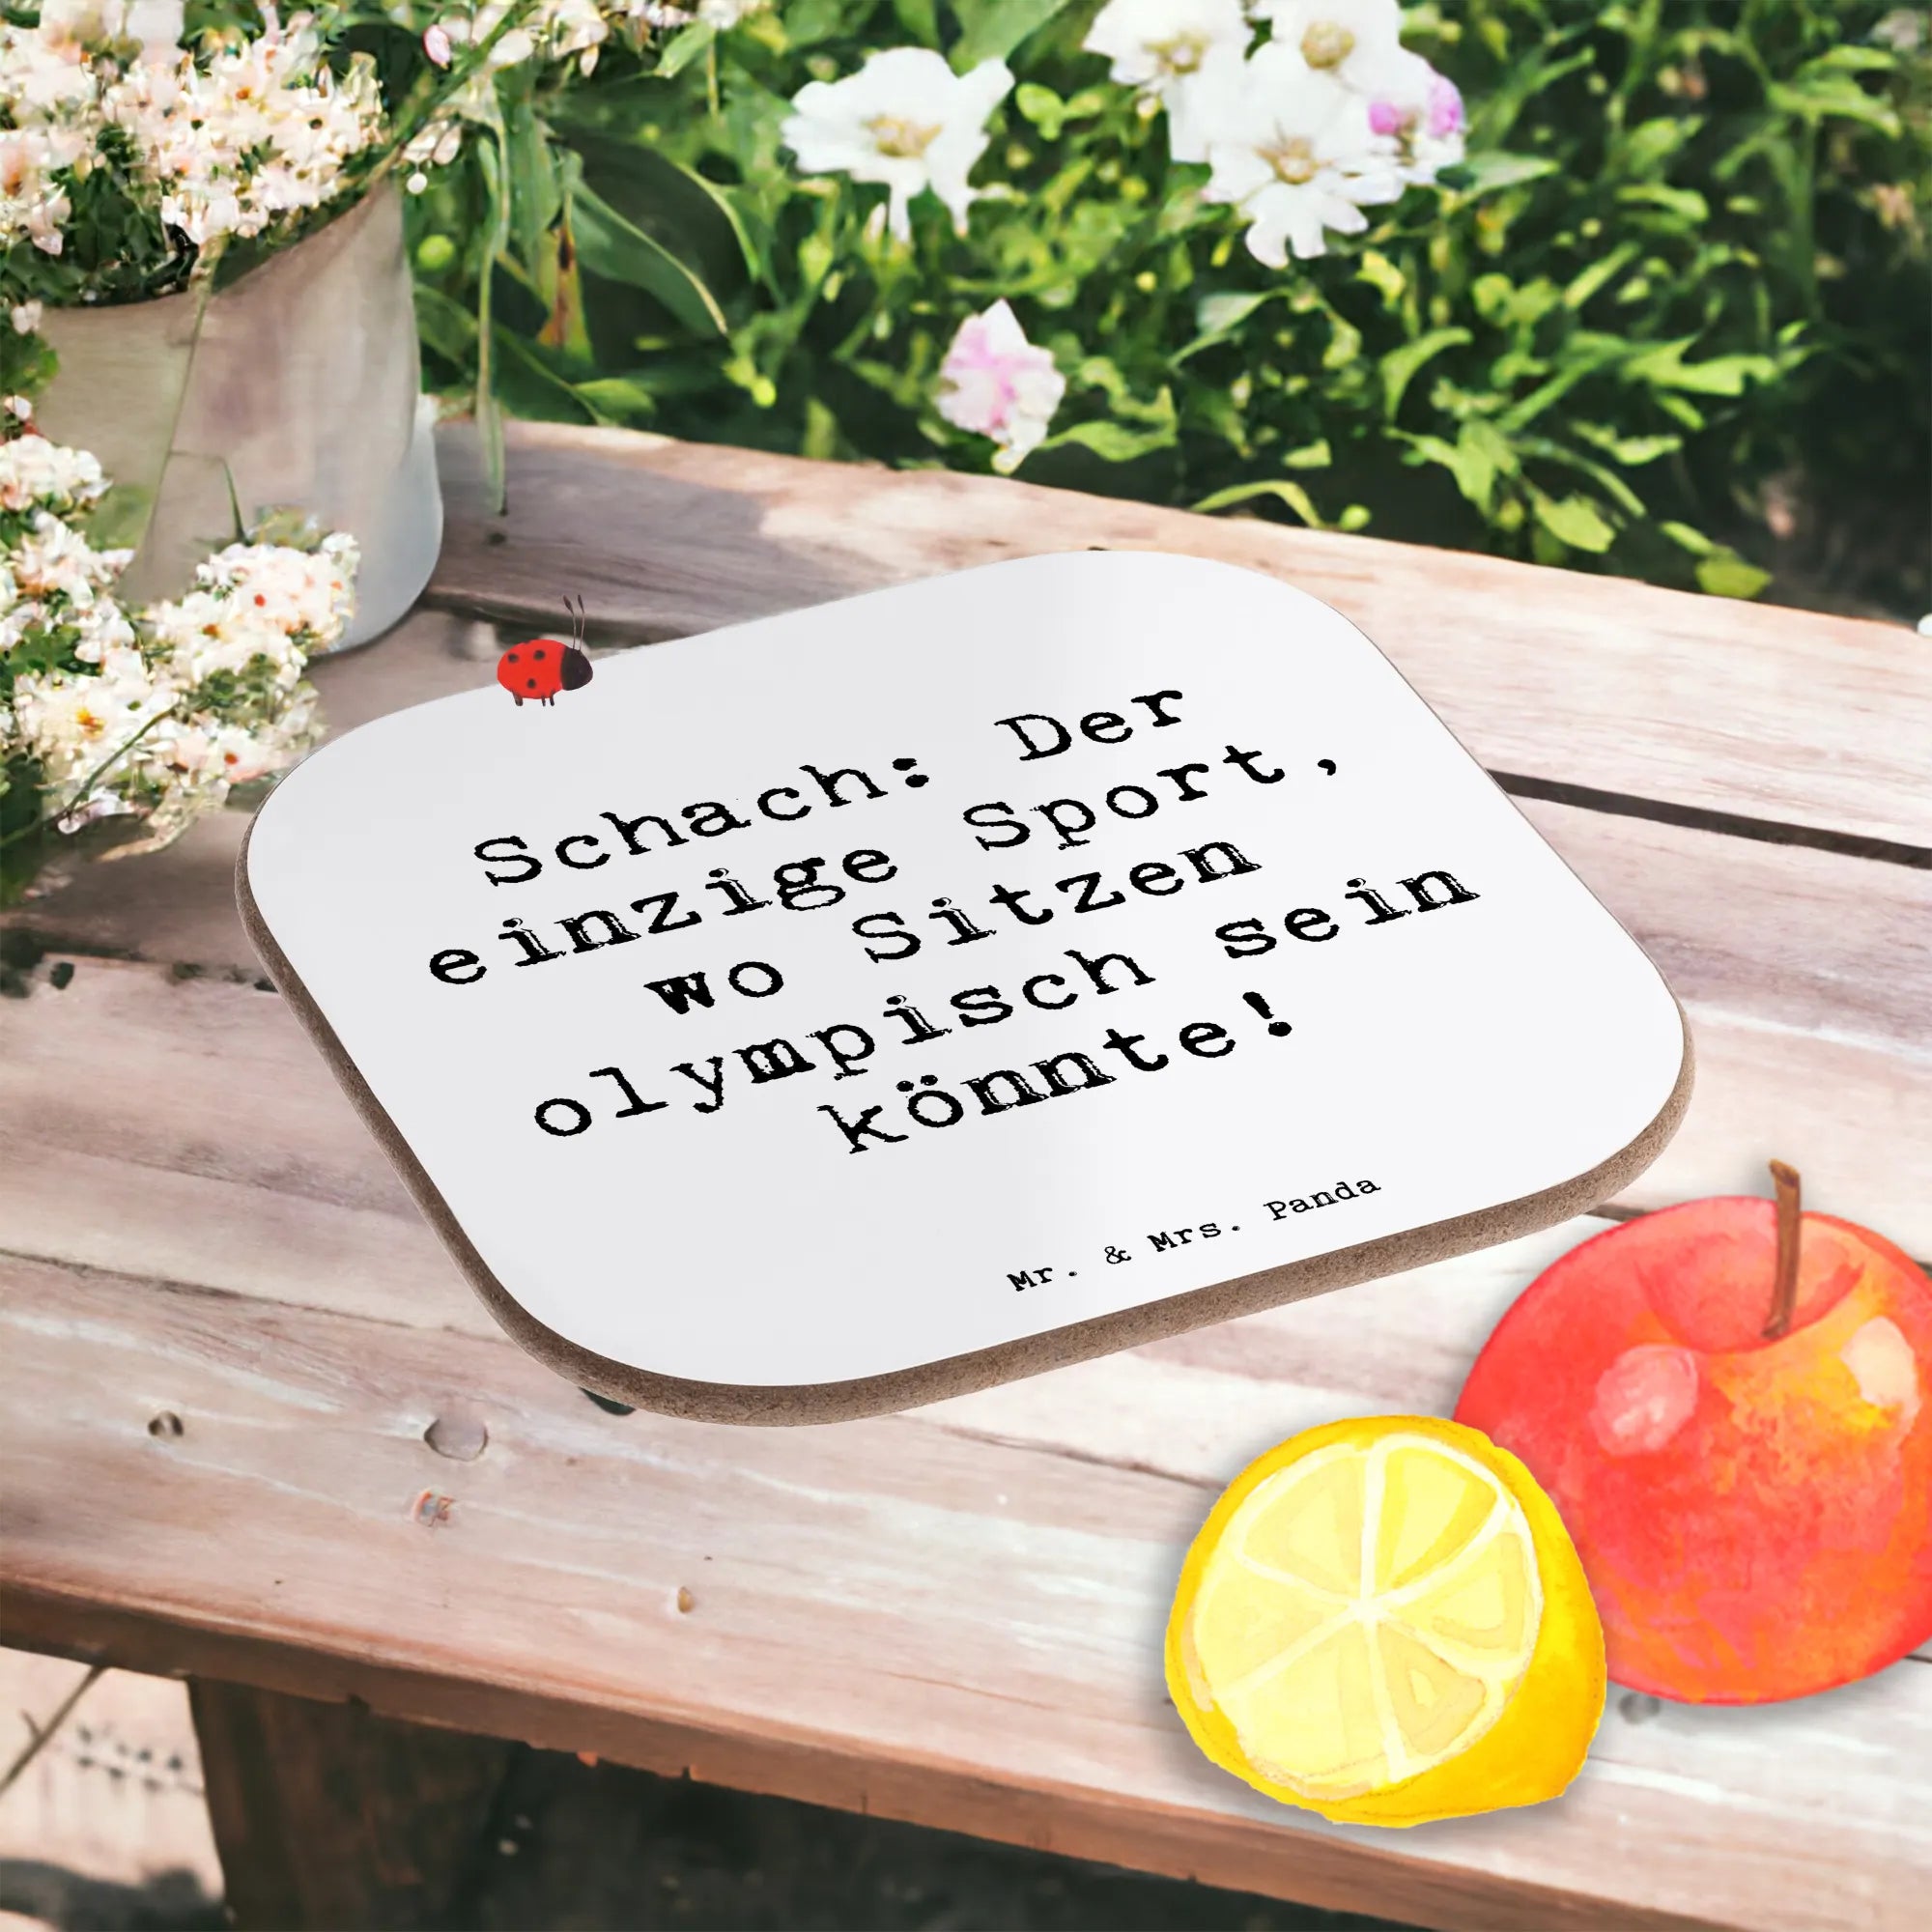 Schach: Der
einzige Sport,
wo Sitzen
olympisch sein
könnte!
Mr. & Mrs. Panda